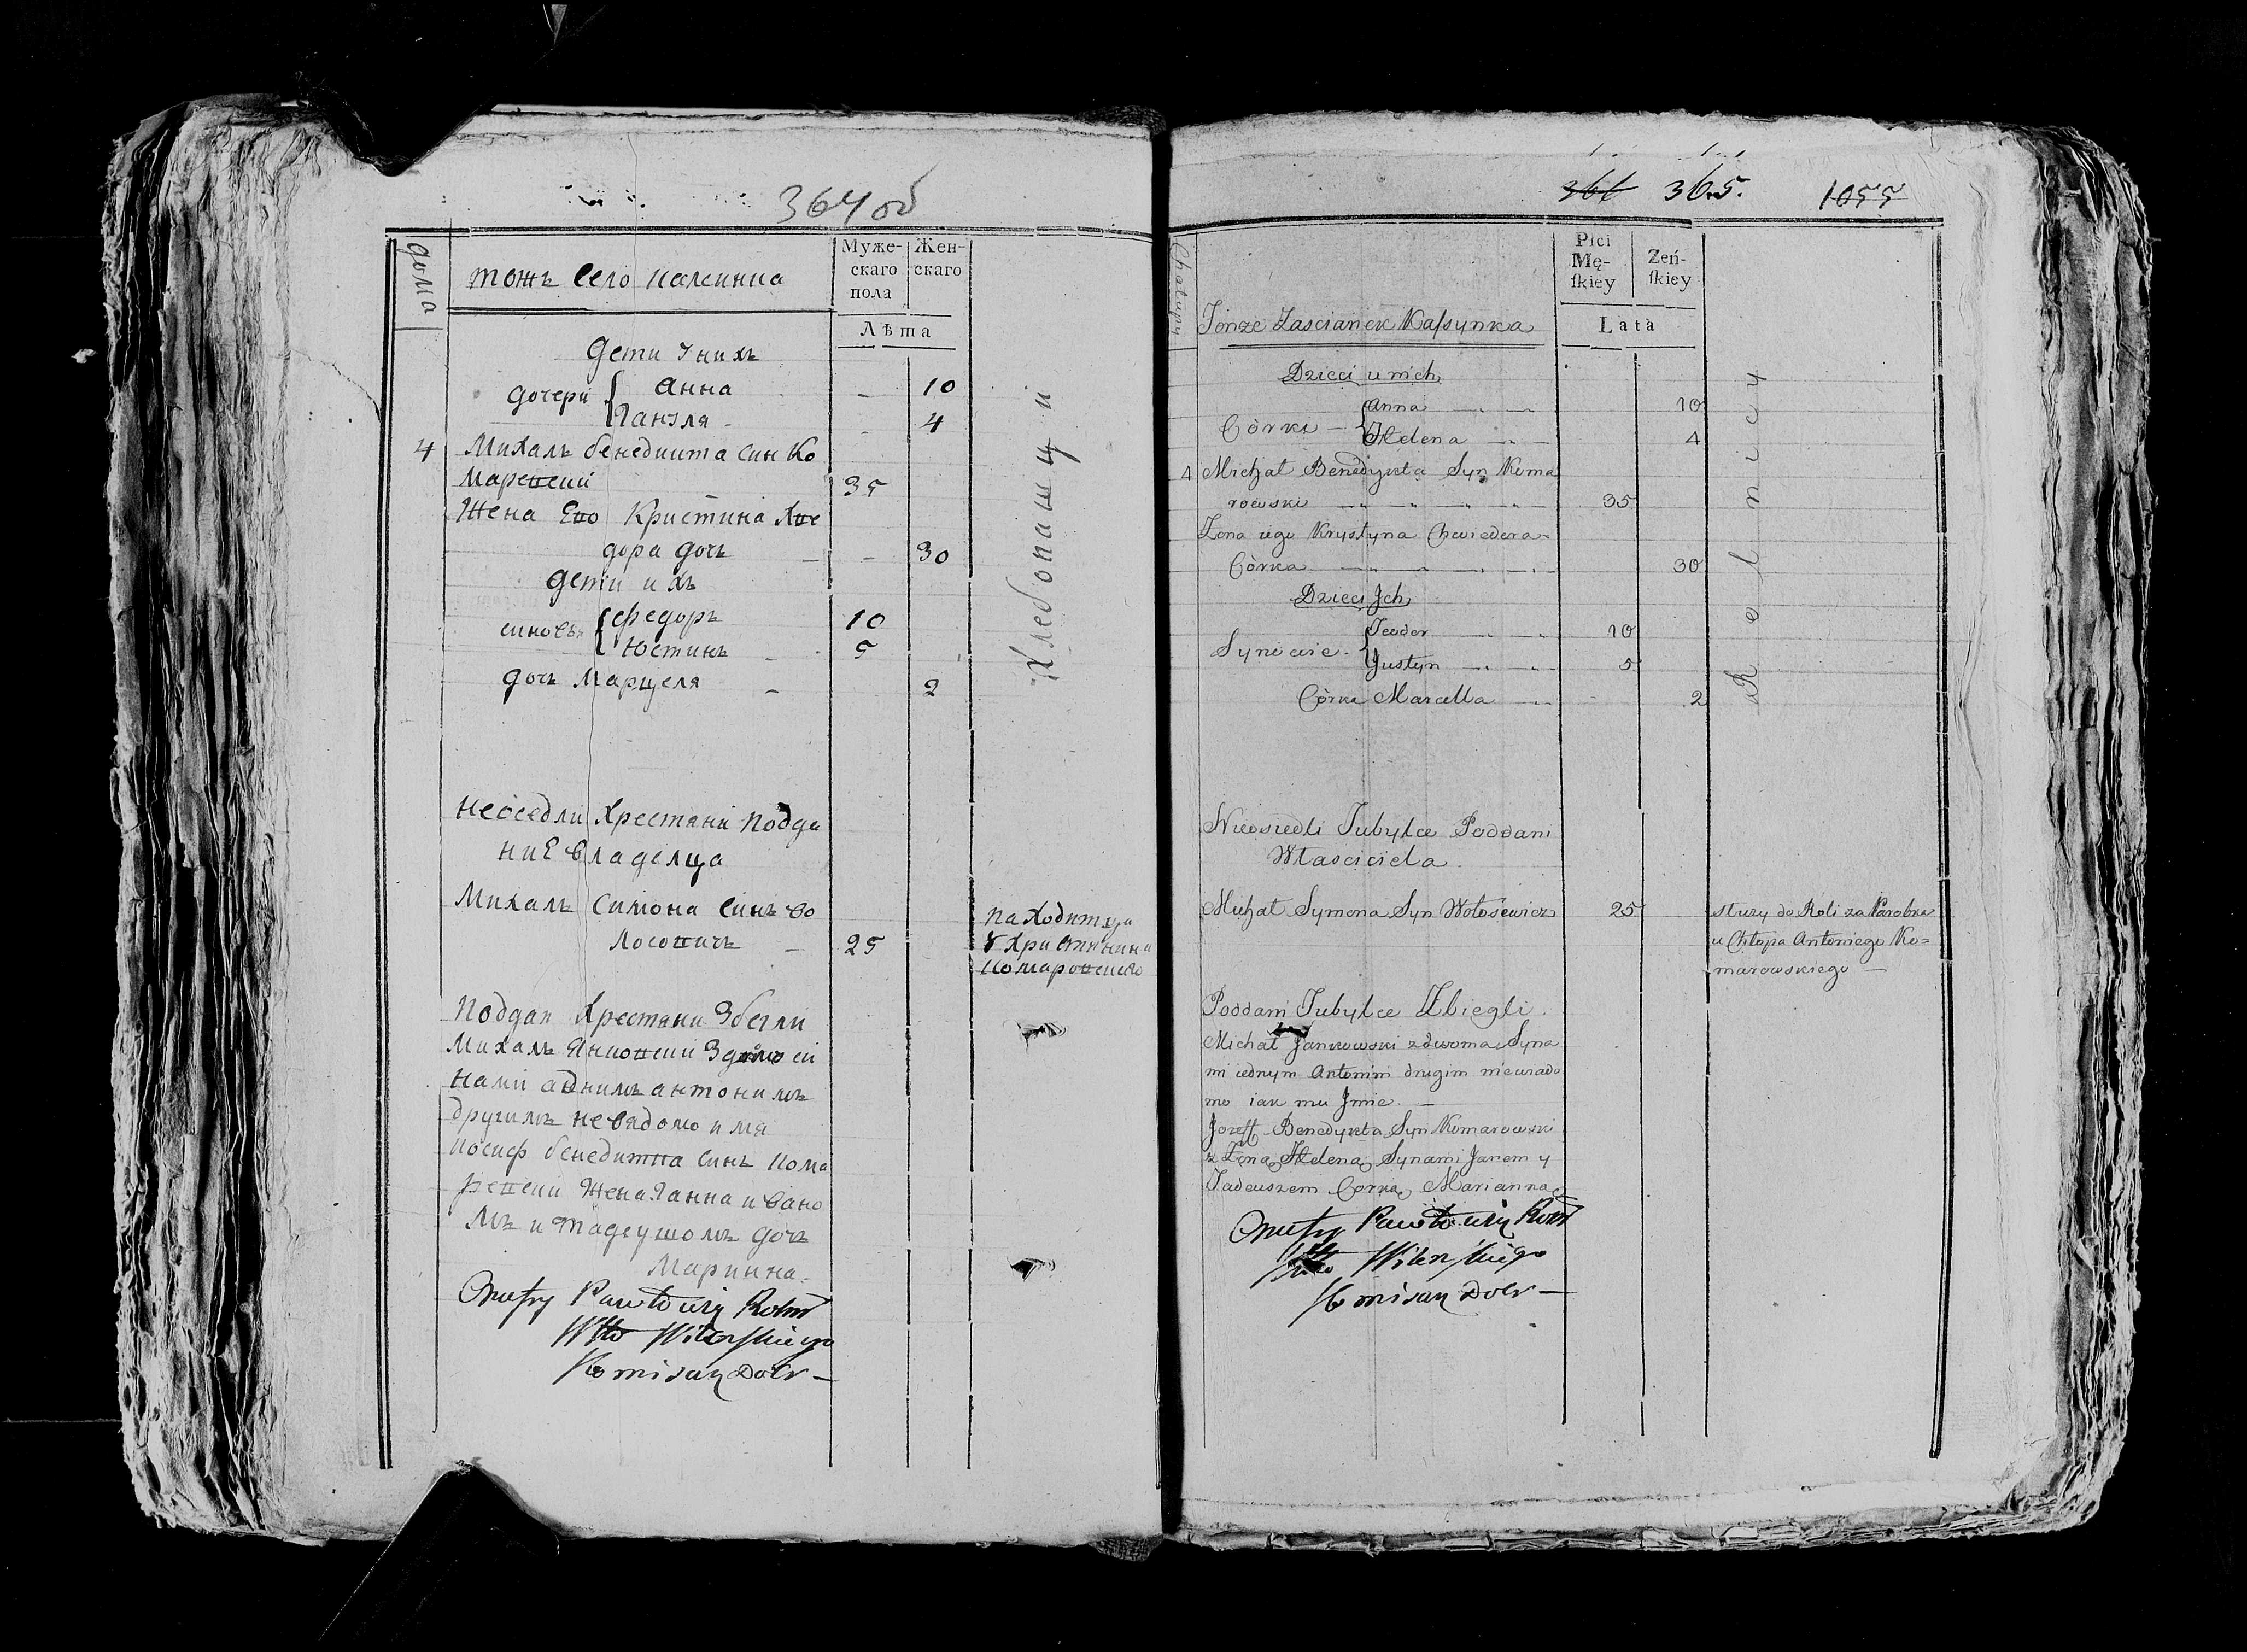 364 об
дома
тожъ село касинка
Муже-
скаго
пола
Жен-
скаго
Лѣта
Дети у нихъ
дочери
анна 10
Ганэля 4
4 Михалъ бенедикта син Ко
маревский 35
Жена Его Кристина Хве
дора дочь 30
дети ихъ
синовья
федоръ 10
Юстинъ 5
дочь Марцеля 2
Хлебопашци
неоседли Хрестяни подда
ние владелца
Михалъ Симона синъ во
лосовичъ 25
находитца
у христианина
комаровского
поддан Хрестяни Збегли
Михалъ Янковский З двома си
нами аднимъ антонимъ
другимъ невядомо имя
иосиф бенедикта синъ кома
ревский жена Ганна ивано
мъ и тадеушомъ дочь
Маринна
Onufry Pawłowicz Rotm
Wtto Wilenskiego
Komisarz Dobr
366 365. 1055
Chałupy
Tonze Zascianek Kasynka
Płci
Mę-
skiey
Żeń-
skiey
Lata
Dzieci u nich
Córki
Anna 10
Helena 4
4 Michał Benedykta Syn Koma
rowski 35
Żona iego Krystyna Chwiedora
Córka 30
Dzieci Jch
Synowie
Teodor 10
Justyn 5
Córka Marcella 2
Rolnicy
Nieosiedli Tubylce Poddani
Własciciela
Michał Symona Syn Wołosewicz 25
służy do Roli za Parobka
u Chłopa Antoniego Ko=
marowskiego
Poddani Tubylce Zbiegli
Michał Jankowski z dwoma Syna
mi iednym Antonim drugim niewiado
mo iak mu Jmie
Jozeff Benedykta Syn Komarowski
z Żoną Heleną Synami Janem y
Tadeuszem Corką Marianną
Onufry Pawłowicz Rotm
Wtto Wilenskiego
Komisarz Dobr